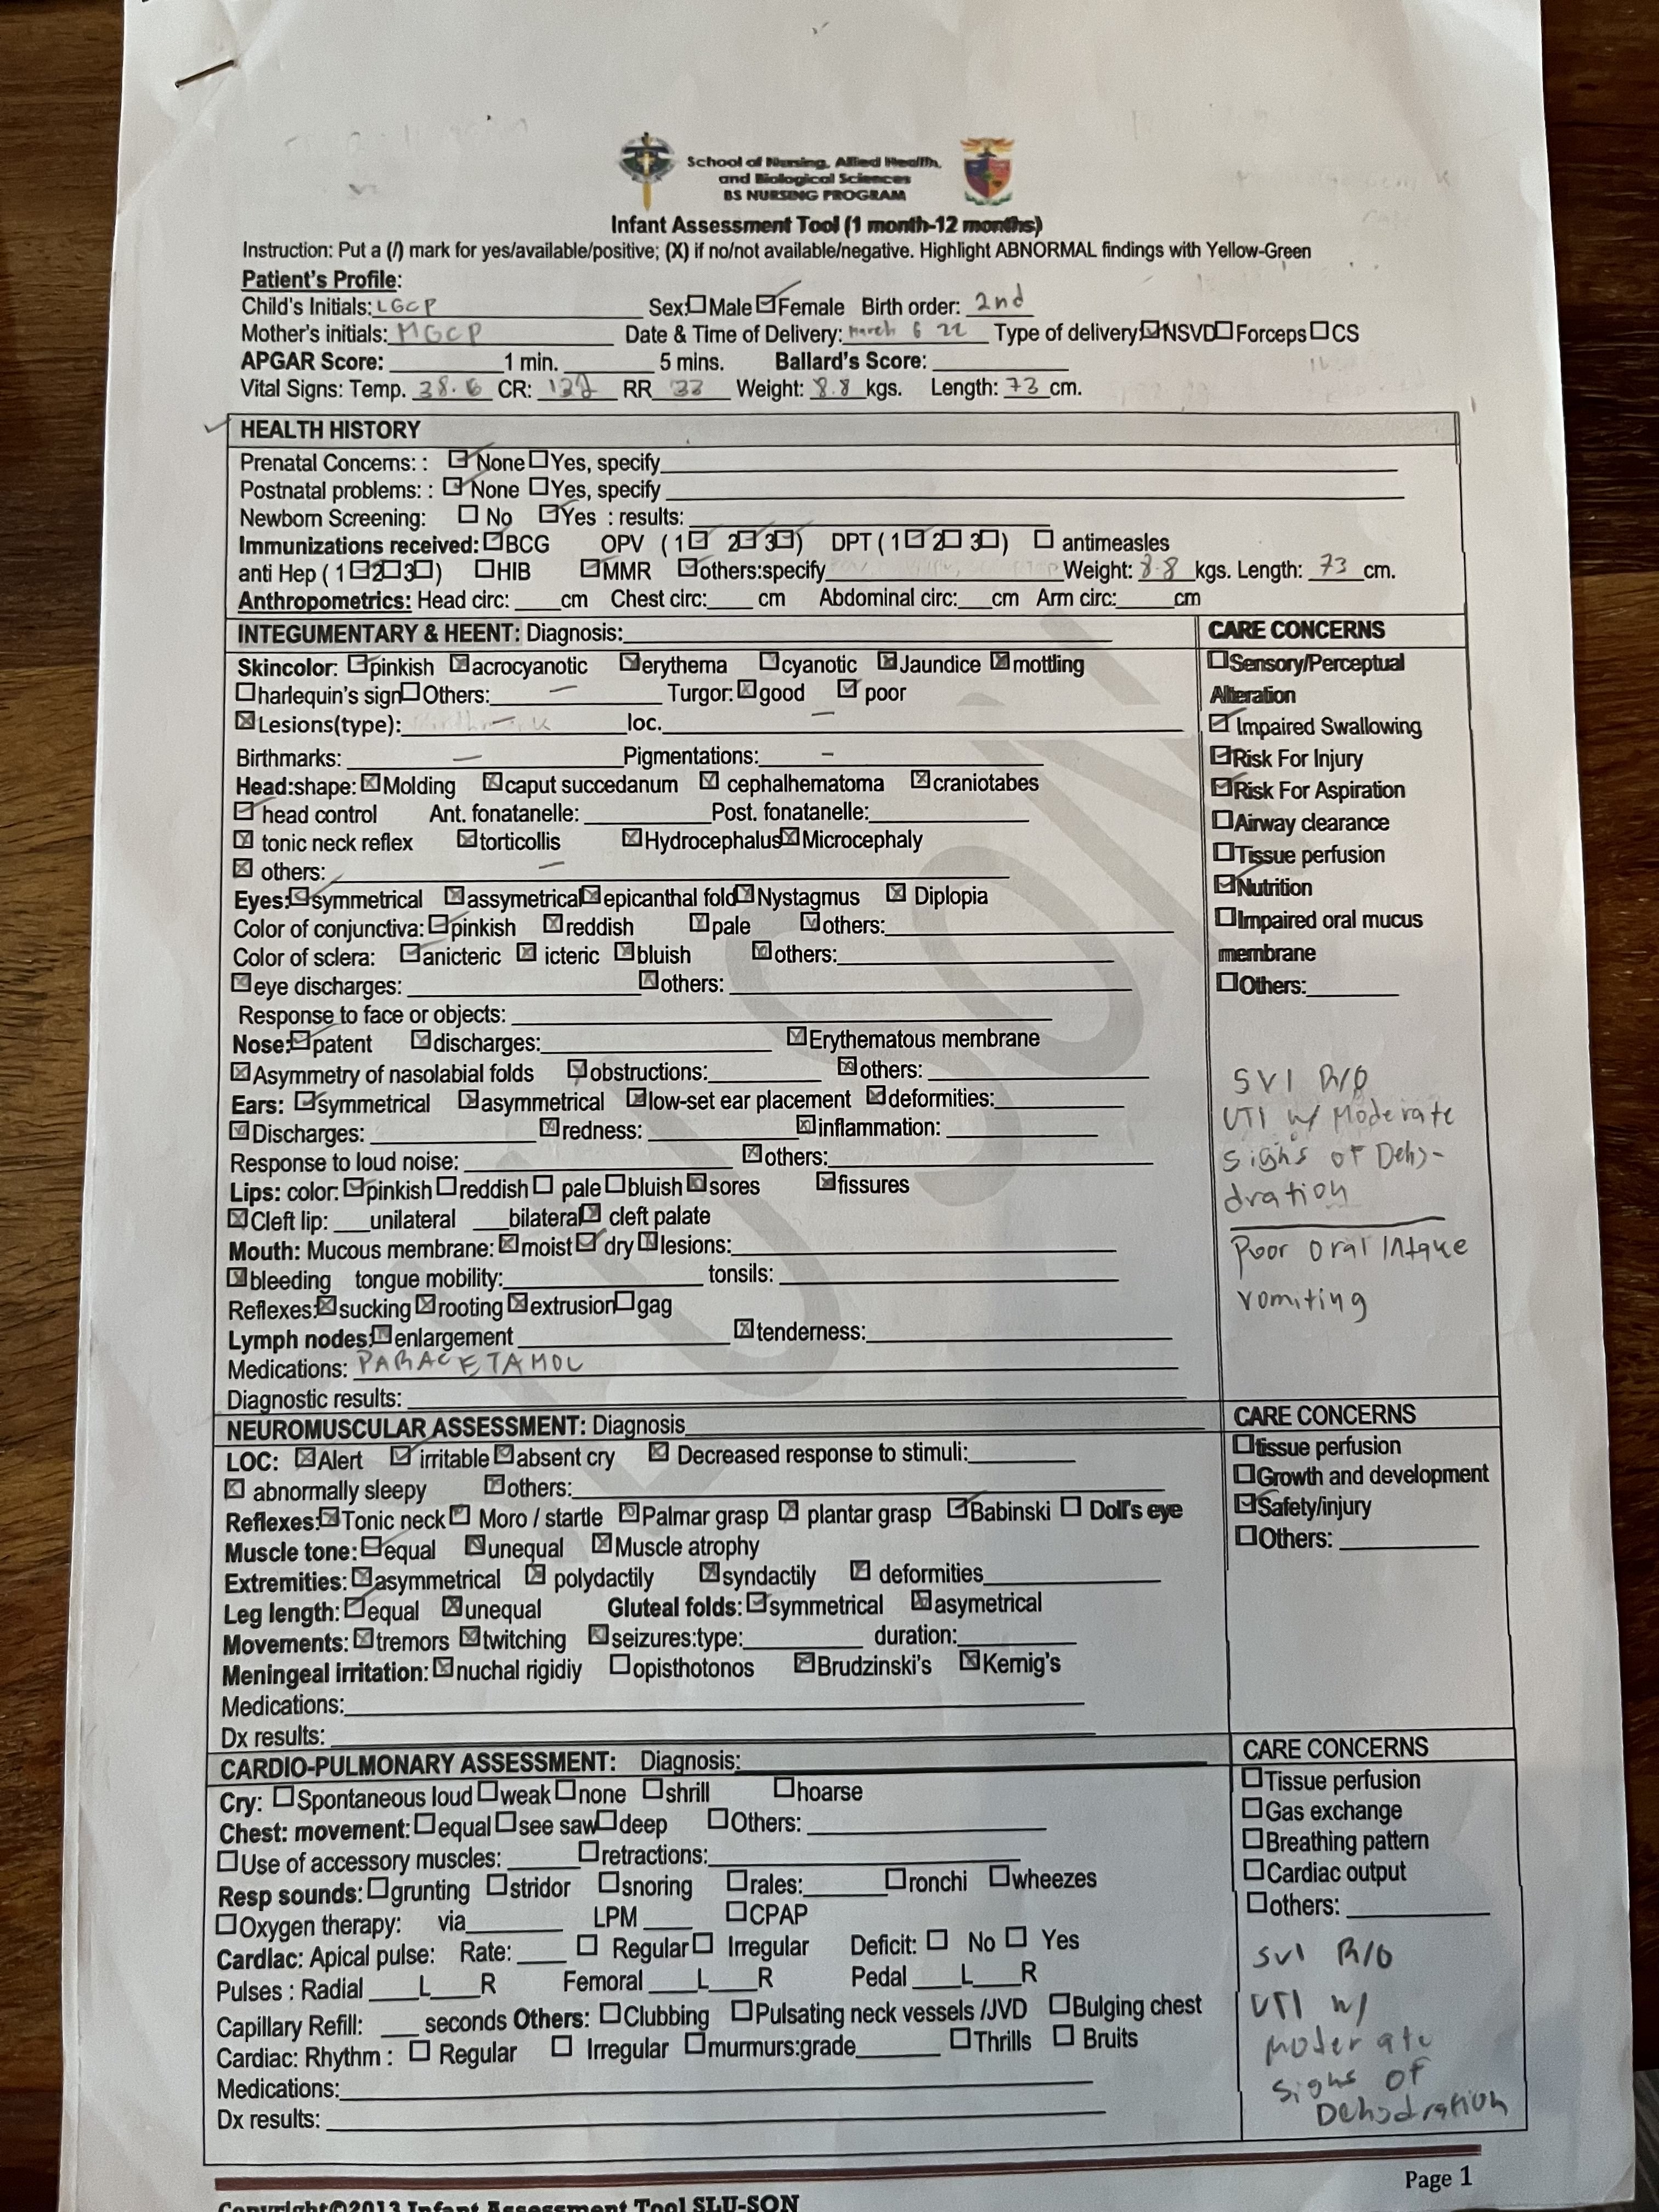 School of Nursing, Allied Health,
and Biological Sciences
BS NURSING PROGRAM
Infant Assessment Tool (1 month-12 months)
Instruction: Put a (/) mark for yes/available/positive; (X) if no/not available/negative. Highlight ABNORMAL findings with Yellow-Green
Patient's Profile:
Child's Initials: LGCP Sex: Male Female Birth order: 2nd
Mother's initials: MGCP Date & Time of Delivery: March 6 22 Type of delivery: NSVD Forceps CS
APGAR Score: 1 min. 5 mins. Ballard's Score:
Vital Signs: Temp. 38.6 CR: RR 33 Weight: 8.8 kgs. Length: 73 cm.
HEALTH HISTORY
Prenatal Concerns: : None Yes, specify
Postnatal problems: : None Yes, specify
Newborn Screening: No Yes : results:
Immunizations received: BCG OPV (1 2 3 ) DPT (1 2 3 ) antimeasles
anti Hep (1 2 3 ) HIB MMR others:specify Weight: 8.8 kgs. Length: 73 cm.
Anthropometrics: Head circ: cm Chest circ: cm Abdominal circ: cm Arm circ: cm
INTEGUMENTARY & HEENT: Diagnosis:
Skincolor: pinkish acrocyanotic erythema cyanotic Jaundice mottling
harlequin's sign Others: — Turgor: good poor
Lesions(type): — loc. —
Birthmarks: — Pigmentations: –
Head:shape: Molding caput succedanum cephalhematoma craniotabes
head control Ant. fonatanelle: Post. fonatanelle:
tonic neck reflex torticollis Hydrocephalus Microcephaly
others: —
Eyes: symmetrical assymetrical epicanthal fold Nystagmus Diplopia
Color of conjunctiva: pinkish reddish pale others:
Color of sclera: anicteric icteric bluish others:
eye discharges: others:
Response to face or objects:
Nose: patent discharges: Erythematous membrane
Asymmetry of nasolabial folds obstructions: others:
Ears: symmetrical asymmetrical low-set ear placement deformities:
Discharges: redness: inflammation:
Response to loud noise: others:
Lips: color: pinkish reddish pale bluish sores fissures
Cleft lip: unilateral bilateral cleft palate
Mouth: Mucous membrane: moist dry lesions:
bleeding tongue mobility: tonsils:
Reflexes: sucking rooting extrusion gag
Lymph nodes: enlargement tenderness:
Medications: PARACETAMOL
Diagnostic results:
CARE CONCERNS
Sensory/Perceptual
Alteration
Impaired Swallowing
Risk For Injury
Risk For Aspiration
Airway clearance
Tissue perfusion
Nutrition
Impaired oral mucus
membrane
Others:
SVI R/O
UTI w/ Moderate
signs of Dehy-
dration
Poor oral Intake
vomiting
NEUROMUSCULAR ASSESSMENT: Diagnosis
LOC: Alert irritable absent cry Decreased response to stimuli:
abnormally sleepy others:
Reflexes: Tonic neck Moro / startle Palmar grasp plantar grasp Babinski Doll's eye
Muscle tone: equal unequal Muscle atrophy
Extremities: asymmetrical polydactily syndactily deformities
Leg length: equal unequal Gluteal folds: symmetrical asymetrical
Movements: tremors twitching seizures:type: duration:
Meningeal irritation: nuchal rigidiy opisthotonos Brudzinski's Kernig's
Medications:
Dx results:
CARE CONCERNS
tissue perfusion
Growth and development
Safety/injury
Others:
CARDIO-PULMONARY ASSESSMENT: Diagnosis:
Cry: Spontaneous loud weak none shrill hoarse
Chest: movement: equal see saw deep Others:
Use of accessory muscles: retractions:
Resp sounds: grunting stridor snoring rales: ronchi wheezes
Oxygen therapy: via LPM CPAP
Cardiac: Apical pulse: Rate: Regular Irregular Deficit: No Yes
Pulses : Radial L R Femoral L R Pedal L R
Capillary Refill: seconds Others: Clubbing Pulsating neck vessels /JVD Bulging chest
Cardiac: Rhythm : Regular Irregular murmurs:grade Thrills Bruits
Medications:
Dx results:
CARE CONCERNS
Tissue perfusion
Gas exchange
Breathing pattern
Cardiac output
others:
SVI R/O
UTI w/
moderate
signs of
Dehydration
Page 1
Copyright©2013 Infant Assessment Tool SLU-SON